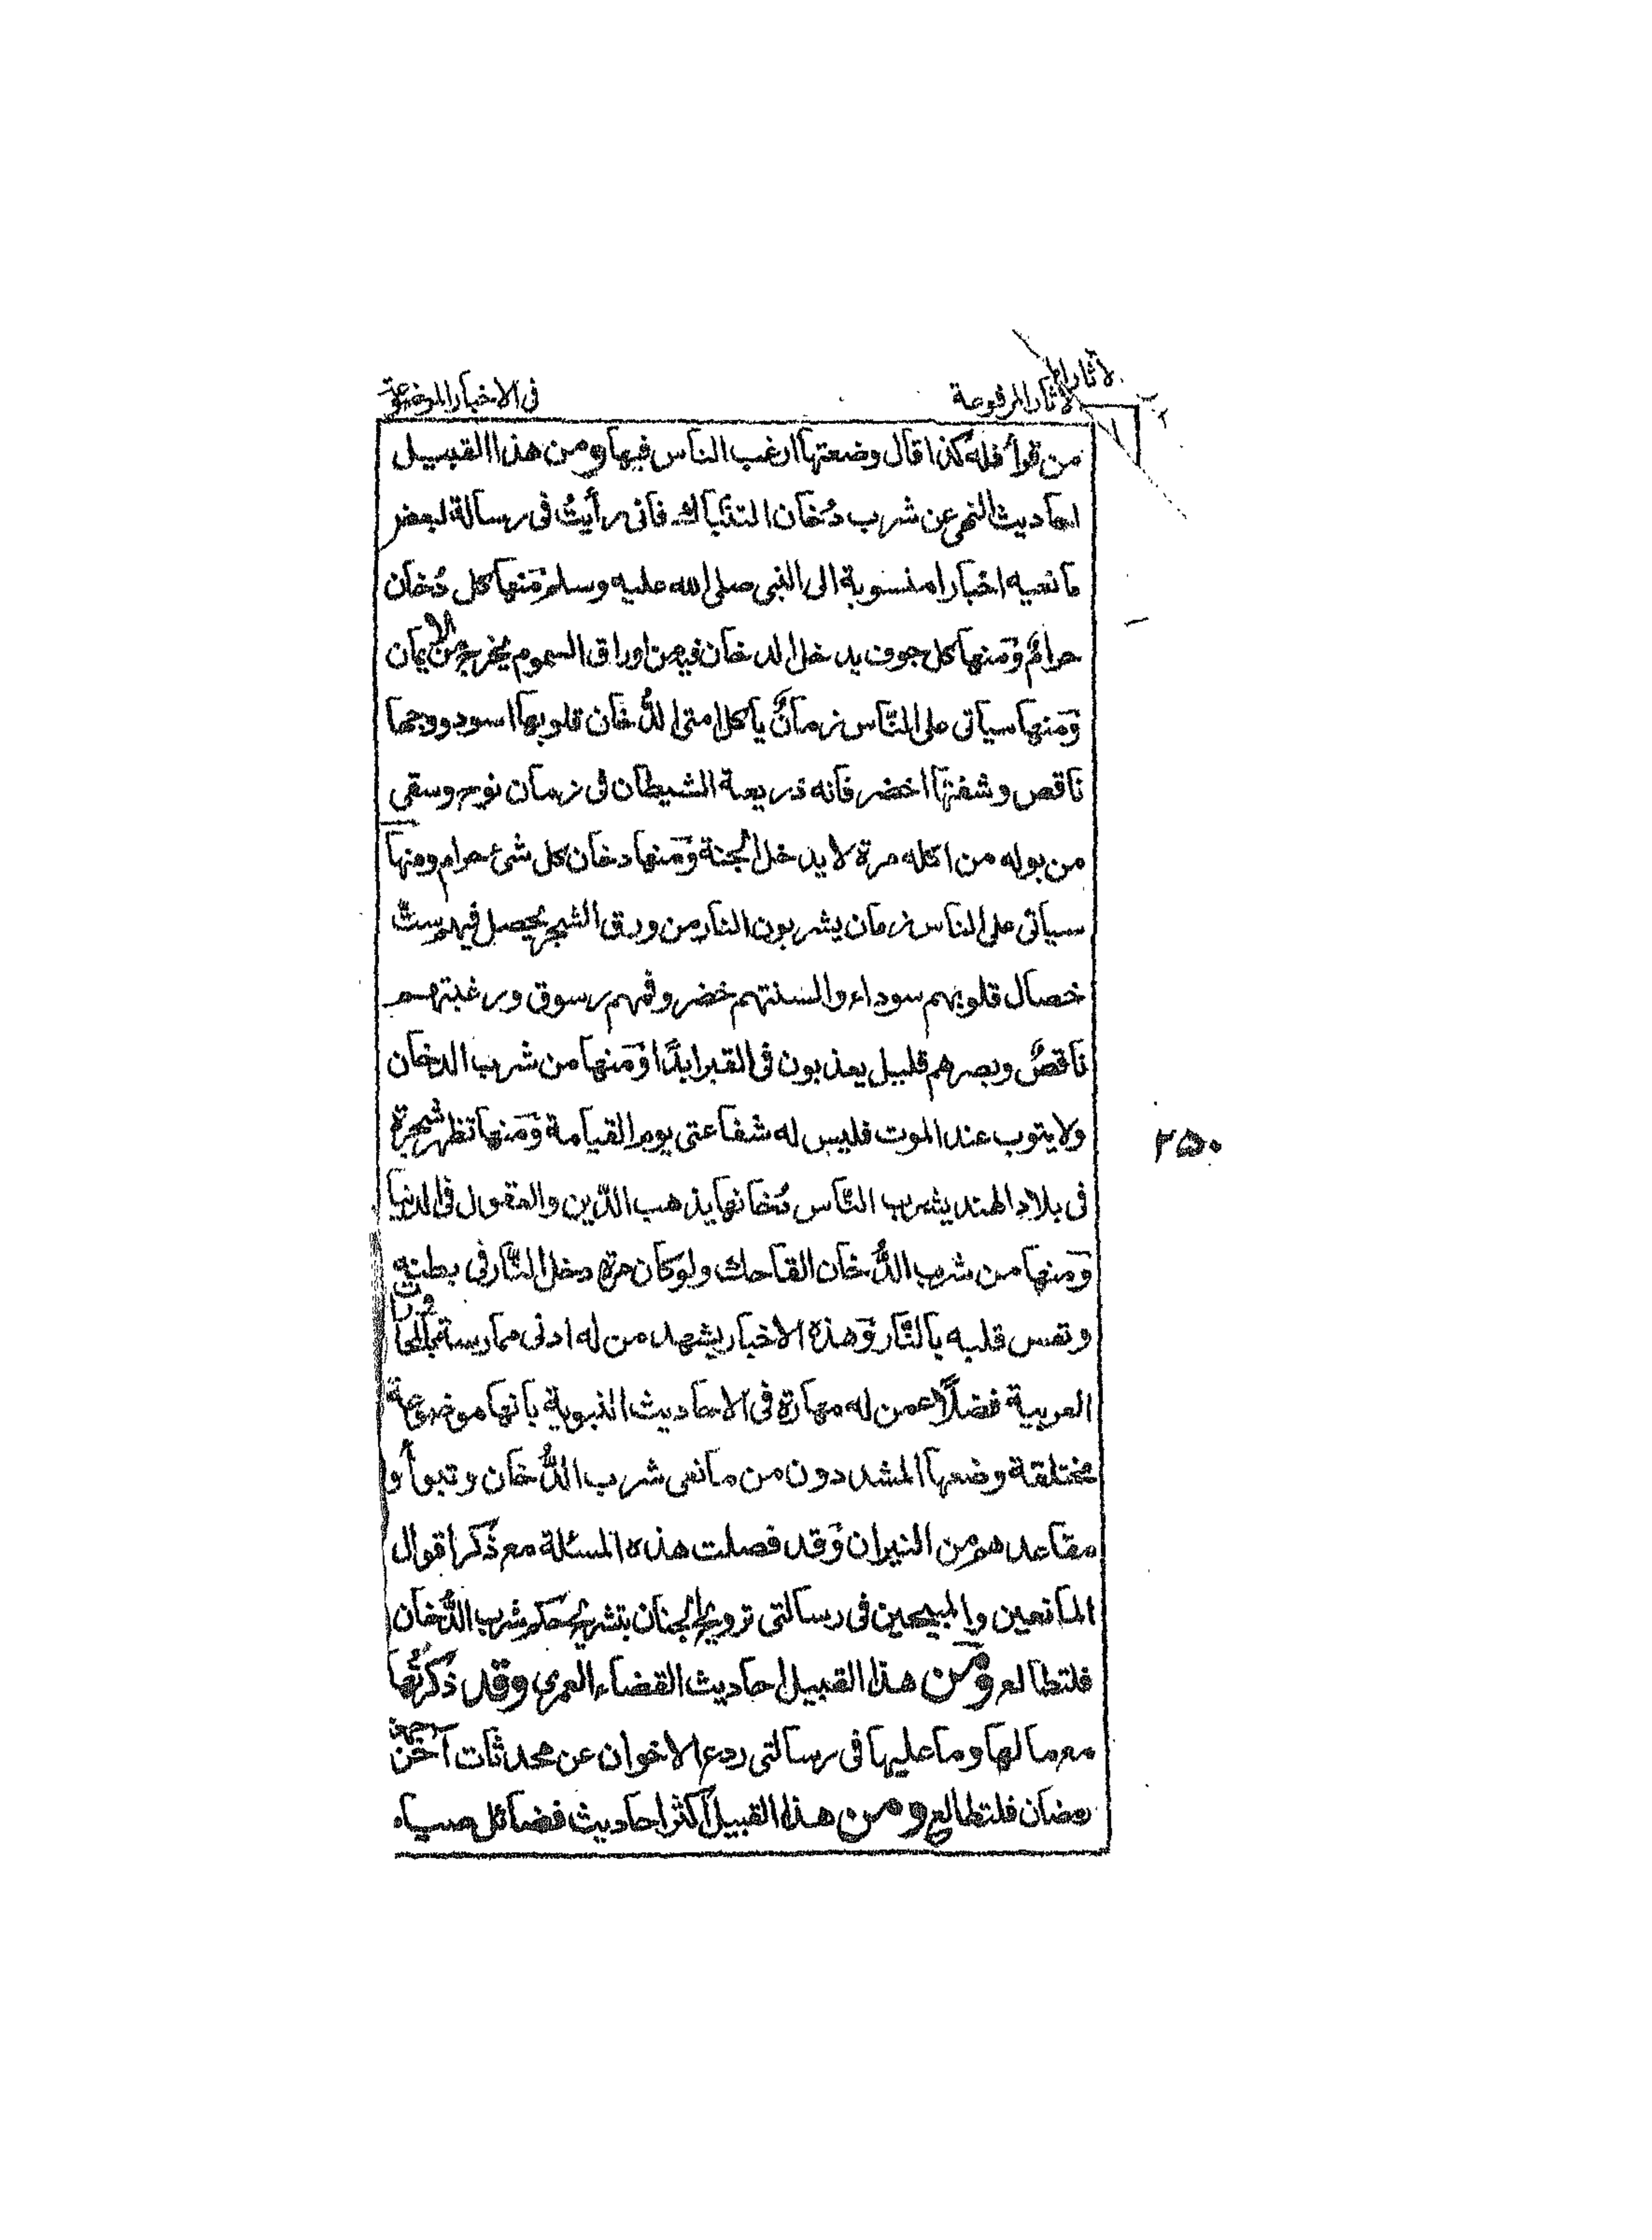 الآثار المرفوعة
في الاخبار الموضوعة
من قرأ فله كذا قال وضعتها ارغب الناس فيها ومن هذا القبيل
احاديث النهى عن شرب دُخان التنباك فانى رأيتُ فى رسالة لبعض
مانعيه اخبارا منسوبة الى النبى صلى الله عليه وسلم وَمنها كل دُخان
حرامٌ وَمنها كل جوف يدخل الدخان فيه من اوراق السموم يخرج من الايمان
وَمنها سياتى على النّاس زمانٌ ياكل امتى الدُّخان قلوبها اسود ووجها
ناقص وشفتها اخضر فانه ذريعة الشيطان فى زمان نوح وسقى
من بوله من اكله مرة لا يدخل الجنة وَمنها دخان كل شئ حرام ومنها
سياتى على الناس زمان يشربون النار من ورق الشجر يحصل فيهم ستّ
خصال قلوبهم سوداء والسنتهم خضر وفمهم رسوق ورغبتهم
ناقصٌ وبصرهم قليل يعذبون فى القبر ابدًا وَمنها من شرب الدخان
ولا يتوب عند الموت فليس له شفاعتى يوم القيامة وَمنها تظهر شجرة
فى بلاد الهند يشرب النّاس دُخانها يذهب الدّين والعقول فى الدنيا
وَمنها من شرب الدُّخان القاحك ولو كان مرة دخل النّار فى بطنه
وتمس قلبه بالنّار وَهذه الاخبار يشهد من له ادنى ممارسة بالمحاورات
العربية فضلًا عمن له مهارة فى الاحاديث النبوية بانها موضوعة
مختلقة وضعها المشددون من مانعى شرب الدُّخان وتبوأوا
مقاعدهم من النيران وَقد فصلت هذه المسئلة مع ذكر اقوال
المانعين والمبيحين فى رسالتى ترويح الجنان بتشريح حكم شرب الدُّخان
فلتطالع وَمن هذا القبيل احاديث القضاء العمرى وقد ذكرتُها
مع ما لها وما عليها فى رسالتى ردع الاخوان عن محدثات آخر جمعة
رمضان فلتطالع ومن هذا القبيل اكثر احاديث فضائل صيام
٢٥٠